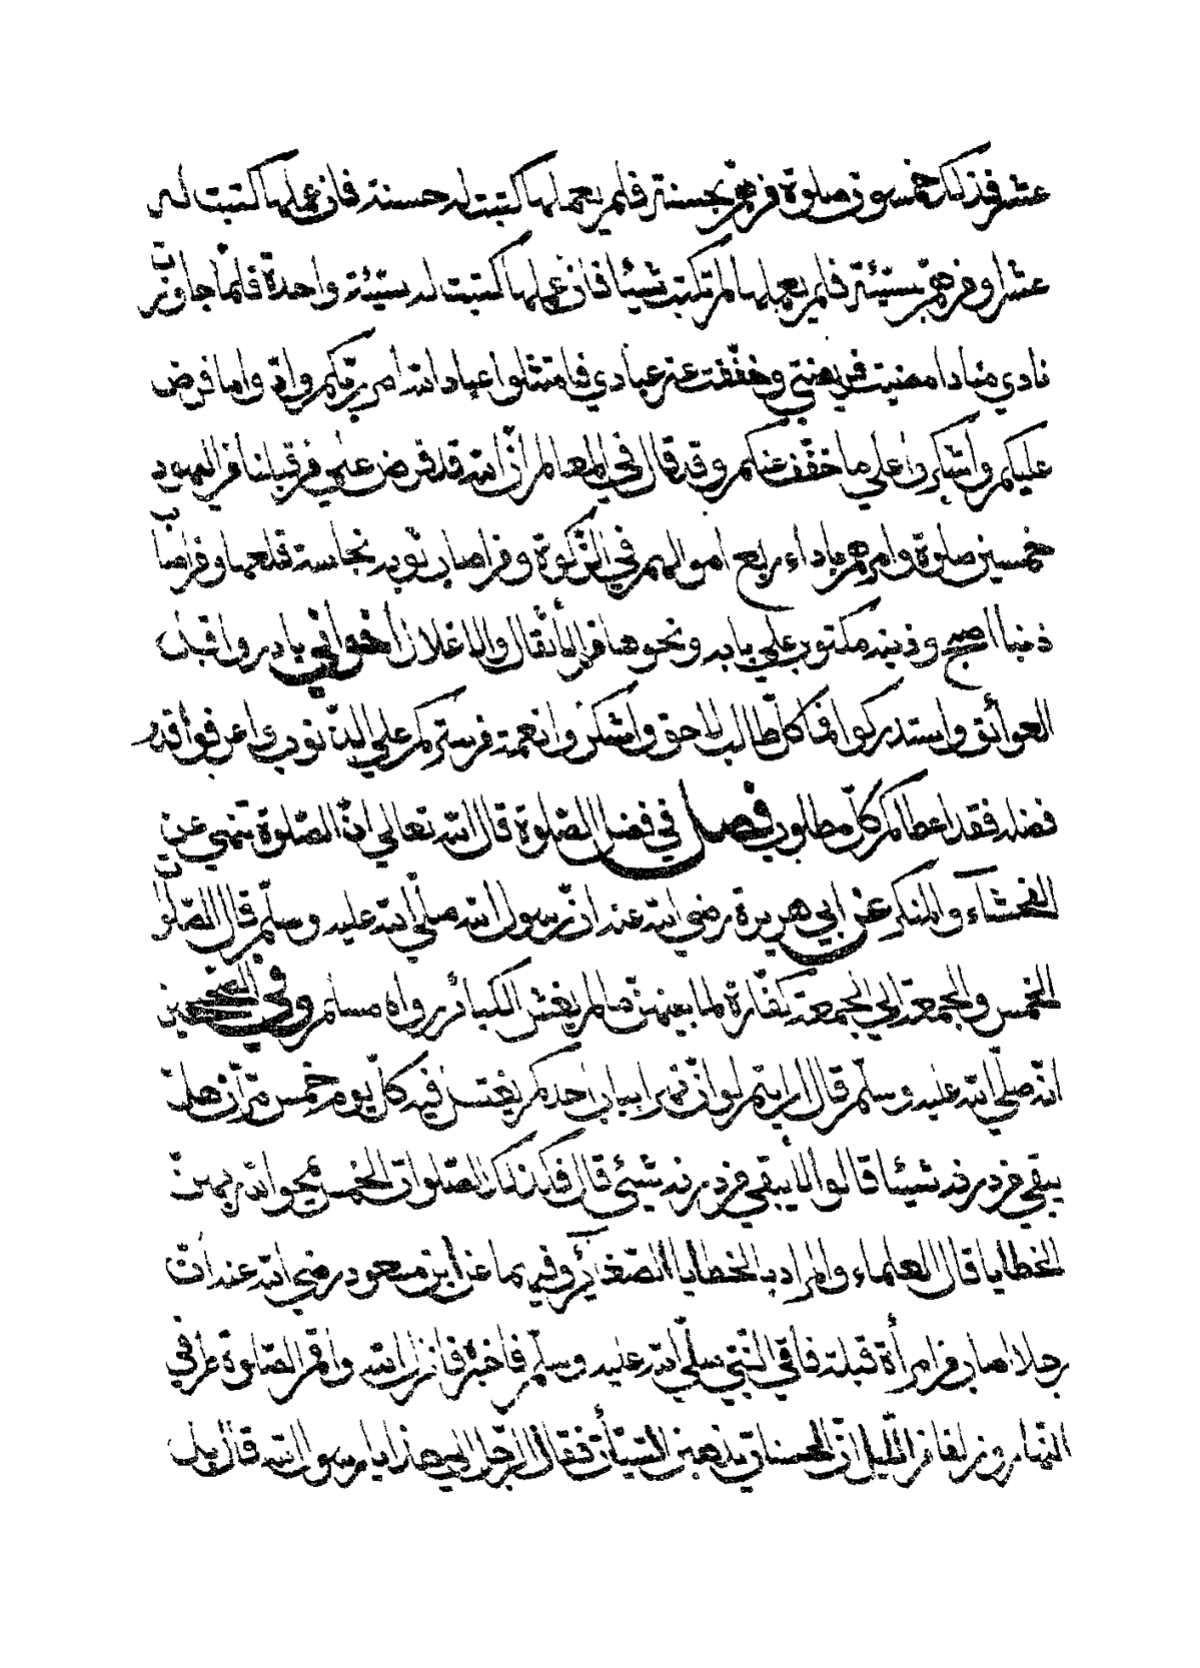 عشر فذلك خمسون صلوة فمن هم بحسنة فلم يعملها كتبت له حسنة فان عملها كتبت له
عشرا ومن هم بسيئة فلم يعملها لم تكتب شيئا فان عملها كتبت له سيئة واحدة فلما جاوزت
نادي مناد امضيت فريضتي وخففت عن عبادي فامتثلوا عباد الله امر ربكم وادوا ما فرض
عليكم واشكروا علي ما خفف عنكم وقد قال في المعالم ان الله قد فرض علي من قبلنا من اليهود
خمسين صلوة وامرهم باداء ربع اموالهم في الزكوة ومن اصاب ثوبه نجاسة قطعها ومن اصاب
ذنبا اصبح وذنبه مكتوب علي بابه ونحوها من الأثقال والاغلال اخواني بادروا قبل
العوائق واستدركوا فما كل طالب لاحق واشكروا نعمة من ستركم علي الذنوب واعرفوا قدر
فضله فقد اعطاكم كل مطلوب فصل في فضل الصلوة قال الله تعالي ان الصلوة تنهي عن
الفحشاء والمنكر عن ابي هريرة رضي الله عنه ان رسول الله صلي الله عليه وسلم قال الصلوات
الخمس والجمعة الي الجمعة كفارة لما بينهن ما لم يغش الكبائر رواه مسلم وفي الصحيحين
انه صلي الله عليه وسلم قال ارايتم لو ان نهرا بباب احدكم يغتسل فيه كل يوم خمس مرات هل
يبقي من درنه شيئا قالوا لا يبقي من درنه شيئي قال فكذلك الصلوات الخمس يمحوا الله بهن
الخطايا قال العلماء والمراد بالخطايا الصغائر وفيهما عن ابن مسعود رضي الله عنه ان
رجلا اصاب من امرأة قبلة فاتي النبي صلي الله عليه وسلم فاخبره فانزل الله واقم الصلوة طرفي
النهار وزلفا من الليل ان الحسنات يذهبن السيئات فقال الرجل الي هذا يا رسول الله قال بل